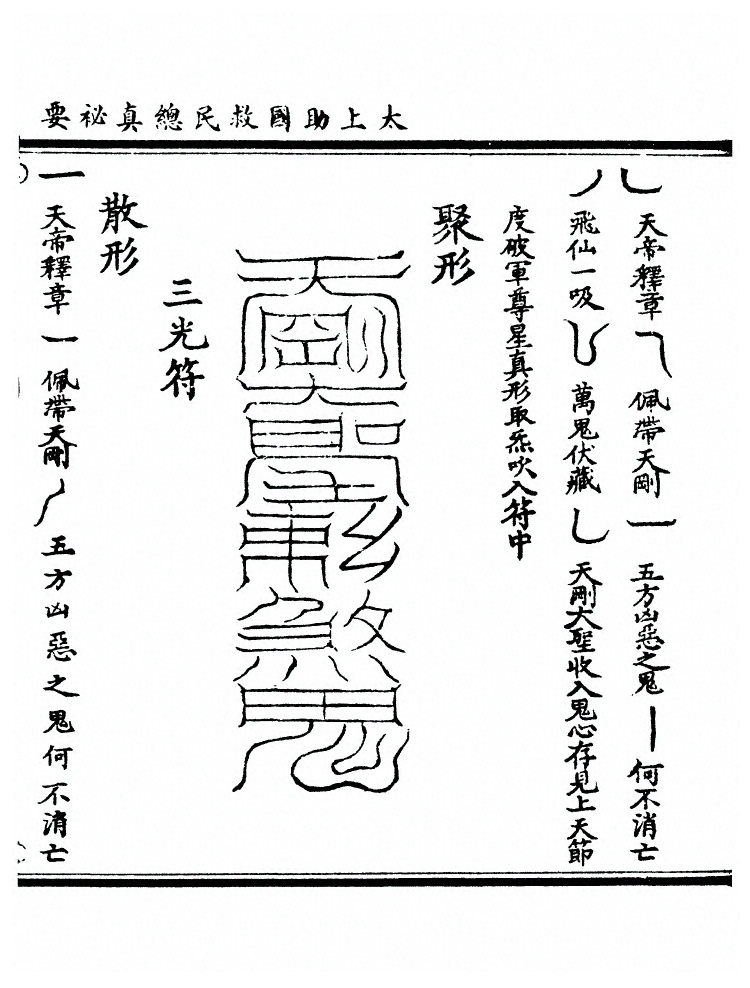 太上助國救民總真祕要
天帝釋章 佩帶天剛 五方凶惡之鬼 何不消亡
飛仙一吸 萬鬼伏藏 天剛大聖收入鬼心存見上天節
度破軍尊星真形取炁吹入符中
聚形
三光符
散形
天帝釋章 佩帶天剛 五方凶惡之鬼何不消亡